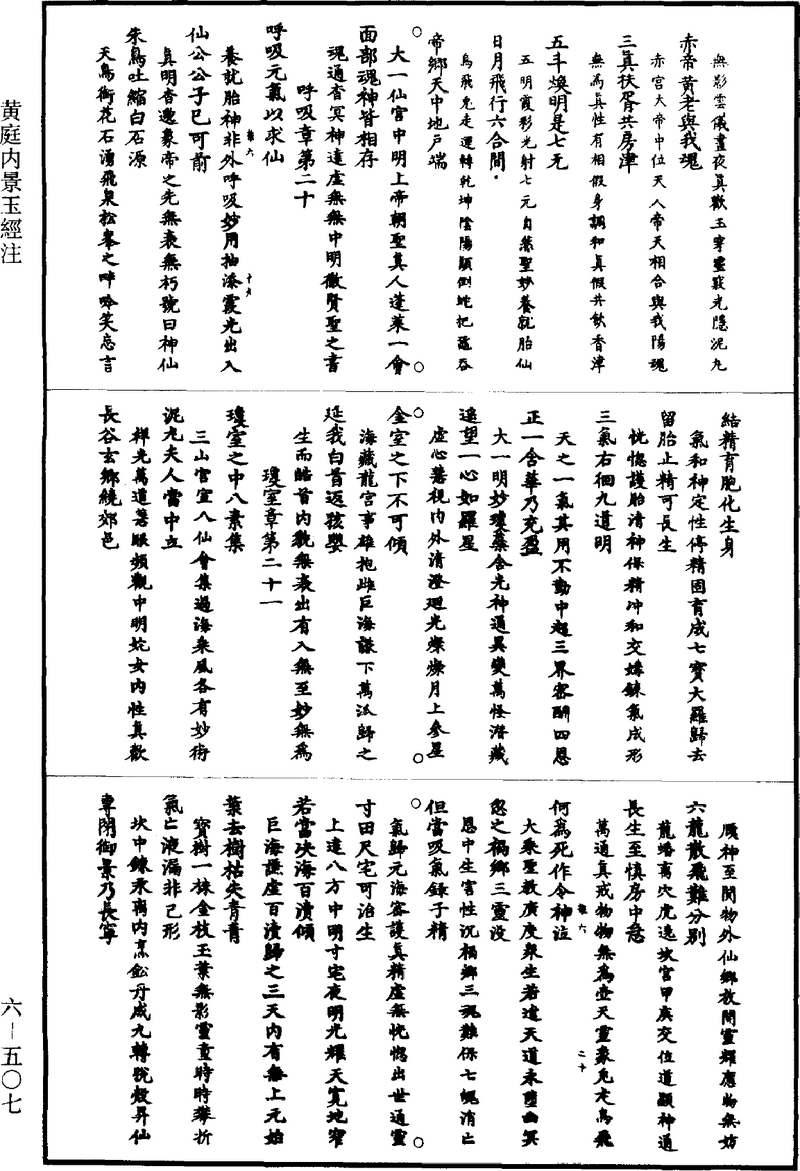 無影雲儀晝夜真歡玉宇靈竅光隱泥丸
赤帝黃老與我魂
赤宮大帝中位天人帝天相合與我陽魂
三真扶胥共房津
無為真性有相假身調和真假共飲香津
五斗煥明是七元
五明霞彩光射七元自蘂聖妙養就胎仙
日月飛行六合間
烏飛兔走運轉乾坤陰陽顛倒蛇把龜吞
帝鄉天中地戶端
大一仙宮中明上帝朝聖真人蓬萊一會
面部魂神皆相存
魂通杳冥神達虛無無中明徹賢聖之書
呼吸章第二十
呼吸元氣以求仙
養就胎神非外呼吸妙用抽添霞光出入
仙公公子已可前
真明杳邈象帝之先無表無朽號曰神仙
朱鳥吐縮白石源
天鳥銜花石湧飛泉松峯之畔吟笑忘言
結精育胞化生身
氣和神定性停精固育成七寶大羅歸去
留胎止精可長生
恍惚護胎清神保精冲和交媾鍊氣成形
三氣右徊九道明
天之一氣其用不勤中超三界密酬四恩
正一含華乃充盈
大一明妙瓊蘂含光神通異變萬怪潛藏
遥望一心如羅星
虛心善視內外清澄廻光燦燦月上參星
金室之下不可傾
海藏龍宮事雄抱雌巨海謙下萬派歸之
延我白首返孩嬰
生而皓首內貌無衰出有入無至妙無為
瓊室章第二十一
瓊室之中八素集
三山宮室八仙會集過海乘風各有妙術
泥丸夫人當中立
祥光萬道善眼頻觀中明姹女內性真歡
長谷玄鄉繞郊邑
順神至閒物外仙鄉放閒靈耀應物無妨
六龍散飛難分別
龍蟠离穴虎遶坎宮甲庚交位道顯神通
長生至慎房中急
萬通真戒物物無為壺天靈象兔走烏飛
何為死作令神泣
大乘聖教廣度衆生若違天道永墮幽冥
忽之禍鄉三靈没
恩中生害性沉禍鄉三魂難保七魄消亡
但當吸氣錄子精
氣歸元海密護真精虛無恍惚出世通靈
寸田尺宅可治生
上達八方中明寸宅夜明光耀天寬地窄
若當決海百瀆傾
巨海謙虛百瀆歸之三天內有無上元始
葉去樹枯失青青
寶樹一株金枝玉葉無影靈童時時攀折
氣亡液漏非己形
坎中鍊汞离內烹鉛丹成九轉脫殼昇仙
專閉御景乃長寧
黃庭內景玉經注
六—五〇七